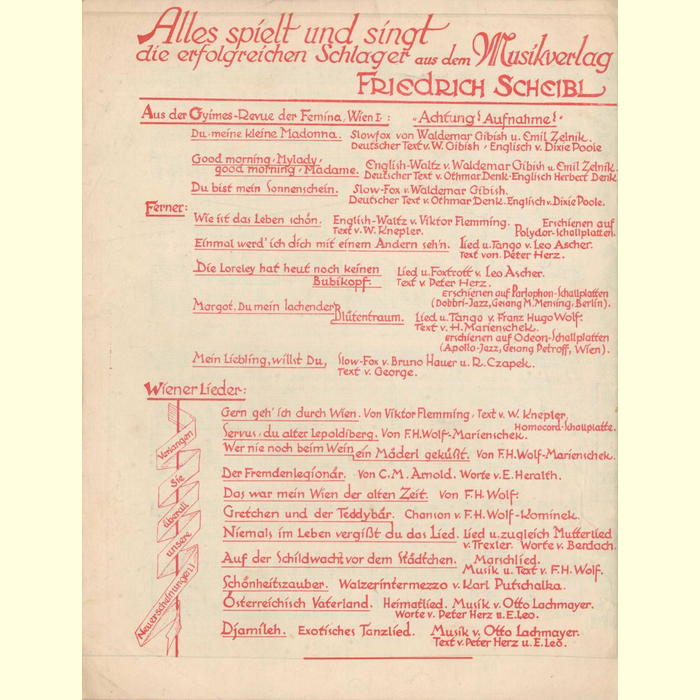 Alles spielt und singt
die erfolgreichen Schlager aus dem Musikverlag
FRIEDRICH SCHEIBL
Aus der Gyimes-Revue der Femina, Wien I.: "Achtung! Aufnahme!"
Du meine kleine Madonna. Slowfox von Waldemar Gibish u. Emil Zelnik.
Deutscher Text v. W. Gibish, Englisch v. Dixie Poole
Good morning, Mylady, English-Waltz v. Waldemar Gibish u. Emil Zelnik.
good morning, Madame. Deutscher Text v. Othmar Denk. Englisch Herbert Denk
Du bist mein Sonnenschein. Slow-Fox v. Waldemar Gibish.
Deutscher Text v. Othmar Denk. Englisch v. Dixie Poole.
Ferner:
Wie ist das Leben schön. English-Waltz v. Viktor Flemming. Erschienen auf
Text v. W. Knepler. Polydor-Schallplatten.
Einmal werd' ich dich mit einem Andern seh'n. Lied u. Tango v. Leo Ascher.
Text von Peter Herz.
Die Loreley hat heut noch keinen Lied u. Foxtrott v. Leo Ascher.
Bubikopf. Text v. Peter Herz.
erschienen auf Parlophon-Schallplatten
(Dobbri-Jazz, Gesang M. Mensing, Berlin).
Margot, Du mein lachender
Blütentraum. Lied u. Tango v. Franz Hugo Wolf.
Text v. H. Marienschek.
erschienen auf Odeon-Schallplatten
(Apollo-Jazz, Gesang Petroff, Wien).
Mein Liebling, willst Du, Slow-Fox v. Bruno Hauer u. R. Czapek.
Text v. George.
Wiener Lieder:
Gern geh' ich durch Wien. Von Viktor Flemming, Text v. W. Knepler,
Homocord-Schallplatte.
Servus, du alter Lepoldiberg. Von F.H. Wolf-Marienschek.
Wer nie noch beim Wein ein Mäderl geküßt. Von F.H. Wolf-Marienschek.
Der Fremdenlegionär. Von C.M. Arnold. Worte v. E. Heralth.
Das war mein Wien der alten Zeit. Von F.H. Wolf.
Gretchen und der Teddybär. Chanson v. F.H. Wolf-Kominek.
Niemals im Leben vergißt du das Lied. Lied u. zugleich Mutterlied
v. Trexler. Worte v. Berdach.
Auf der Schildwacht vor dem Städtchen. Marschlied.
Musik u. Text v. F.H. Wolf.
Schönheitszauber. Walzerintermezzo v. Karl Putschalka.
Österreichisch Vaterland. Heimatlied. Musik v. Otto Lachmayer.
Worte v. Peter Herz u. E. Leo.
Djamileh. Exotisches Tanzlied. Musik v. Otto Lachmayer.
Text v. Peter Herz u. E. Leo.
Verlangen
Sie
überall
unsere
Neuerscheinungen!